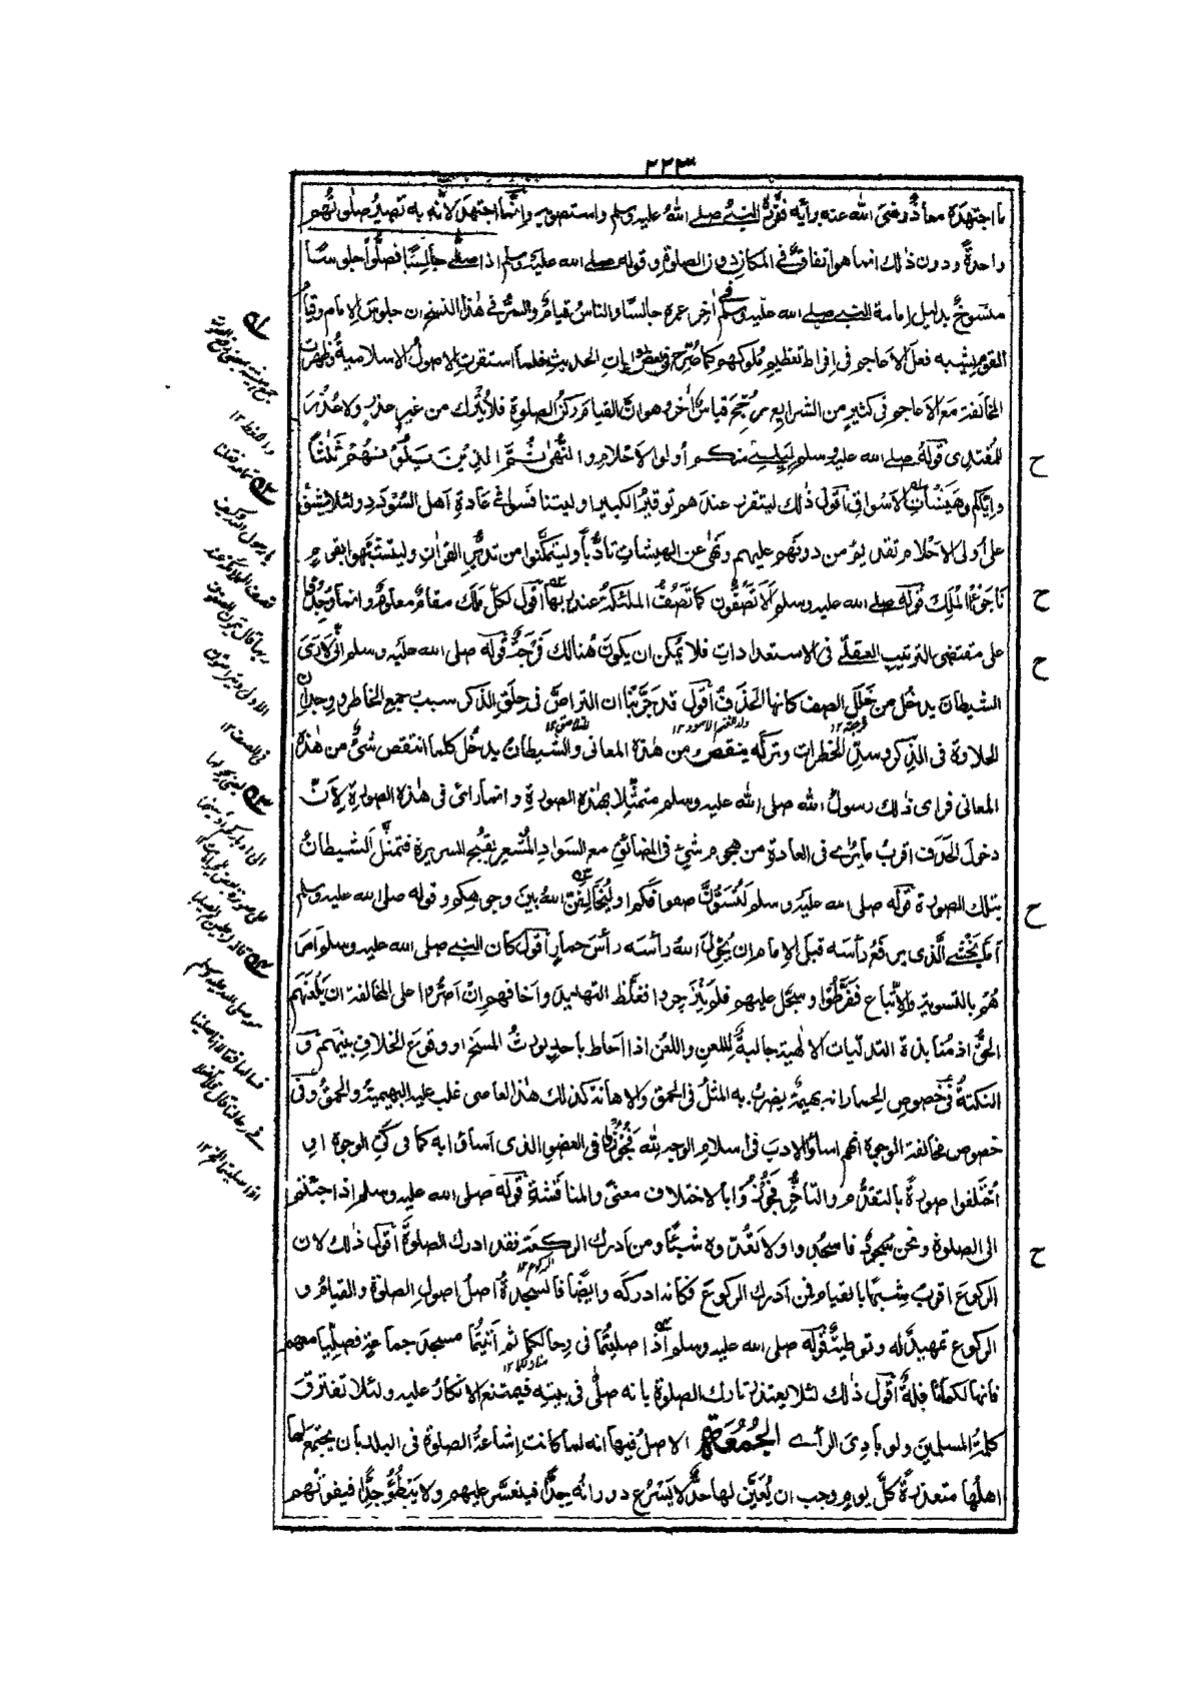 ٢٢٣
ما اجتهده معاذ رضى الله عنه برأيه فقرره النبى صلى الله عليه وسلم واستصوبه وانما اجتهد لانه به تصير صلوتهم
واحدة ودون ذلك انما هو اتفاق فى المكان دون الصلوة وقوله صلى الله عليه وسلم اذا صلى جالسا فصلوا جلوسا
منسوخ بدليل امامة النبى صلى الله عليه وسلم فى آخر عمره جالسا والناس قيام والسر فى هذا النسخ ان جلوس الامام وقيام
القوم يشبه فعل الاعاجم فى افراط تعظيم ملوكهم كما صرح فى بعض روايات الحديث فلما استقرت الاصول الاسلامية وظهرت
المخالفة مع الاعاجم فى كثير من الشرايع رجح قياس آخر وهو ان القيام ركن الصلوة فلا يترك من غير عذر ولا عذر
للمقتدى قوله صلى الله عليه وسلم ليلينى منكم أولوا الاحلام والنهى ثم الذين يلونهم ثلثا
واياكم وهيشات الاسواق اقول ذلك ليتقرر عندهم توقير الكبير او ليتنافسوا فى عادة اهل السؤدد ولئلا يشق
على أولى الاحلام تقديم من دونهم عليهم ونهى عن الهيشات تأدبا وليتمكنوا من تدبر القران وليتشبهوا بقوم
ناجوا الملك قوله صلى الله عليه وسلم الا تصفون كما تصف الملئكة عند ربها اقول لكل ملك مقام معلوم وانما وجدوا
على مقتضى الترتيب العقلى فى الاستعدادات فلا يمكن ان يكون هنالك فرجة قوله صلى الله عليه وسلم انى لارى
الشيطان يدخل من خلل الصف كانها الحذف اقول قد جربنا ان التراص فى حلق الذكر سبب جمع الخاطر ووجدان
الحلاوة فى الذكر وسد الخطرات وتركه ينقص من هذه المعانى والشيطان يدخل كلما انتقص شئ من هذه
المعانى فراى ذلك رسول الله صلى الله عليه وسلم متمثلا بهذه الصورة وانما رائ فى هذه الصورة لان
دخول الحذف اقرب ما يرى فى العادة من هجوم شئ فى المضائق مع السواد المشعر بقبح السريرة فتمثل الشيطان
بتلك الصورة قوله صلى الله عليه وسلم لتسون صفوفكم او ليخالفن الله بين وجوهكم وقوله صلى الله عليه وسلم
أما يخشى الذى يرفع رأسه قبل الامام ان يحول الله رأسه رأس حمار اقول كان النبى صلى الله عليه وسلم امر
هم بالتسوية والاتباع ففرطوا وسجل عليهم فلم ينزجروا فغلظ التهديد واخافهم ان اصروا على المخالفة ان يلعنهم
الحق اذ منابذة التدليات الالهية جالبة للعن واللعن اذا احاط باحد يورث المسخ او وقوع الخلاف بينهم و
النكتة فى خصوص الحمار انه بهيمة يضرب به المثل فى الحمق والاهانة كذلك هذا العاصى غلب عليه البهيمية والحمق وفى
خصوص مخالفة الوجوه انهم اساؤا الادب فى اسلام الوجه لله فجوزوا فى العضو الذى اساؤا به كما فى كى الوجوه او
اختلفوا صورة بالتقدم والتأخر فجوزوا بالاختلاف معنى والمناقشة قوله صلى الله عليه وسلم اذا جئتم
الى الصلوة ونحن سجود فاسجدوا ولا تعدوه شيئا ومن ادرك الركعة فقد ادرك الصلوة اقول ذلك لان
الركوع اقرب شبها بالقيام فمن ادرك الركوع فكانه ادركه وايضا فالسجدة اصل اصول الصلوة والقيام و
الركوع تمهيد له وتوطية قوله صلى الله عليه وسلم اذا صليتما فى رحالكما ثم أتيتما مسجد جماعة فصليا معهم
فانها لكما نافلة اقول ذلك لئلا يعتذر تارك الصلوة بانه صلى فى بيته فيمتنع الانكار عليه ولئلا تفترق
كلمة المسلمين ولو بادى الرأى الجمعة الاصل فيها انه لما كانت اشاعة الصلوة فى البلد بان يجتمع لها
اهلها متعذرة كل يوم وجب ان يعين لها حد لا يسرع دورانه جدا فيتعسر عليهم ولا يبطؤ جدا فيفوتهم
ح
ح
ح
ح
ح